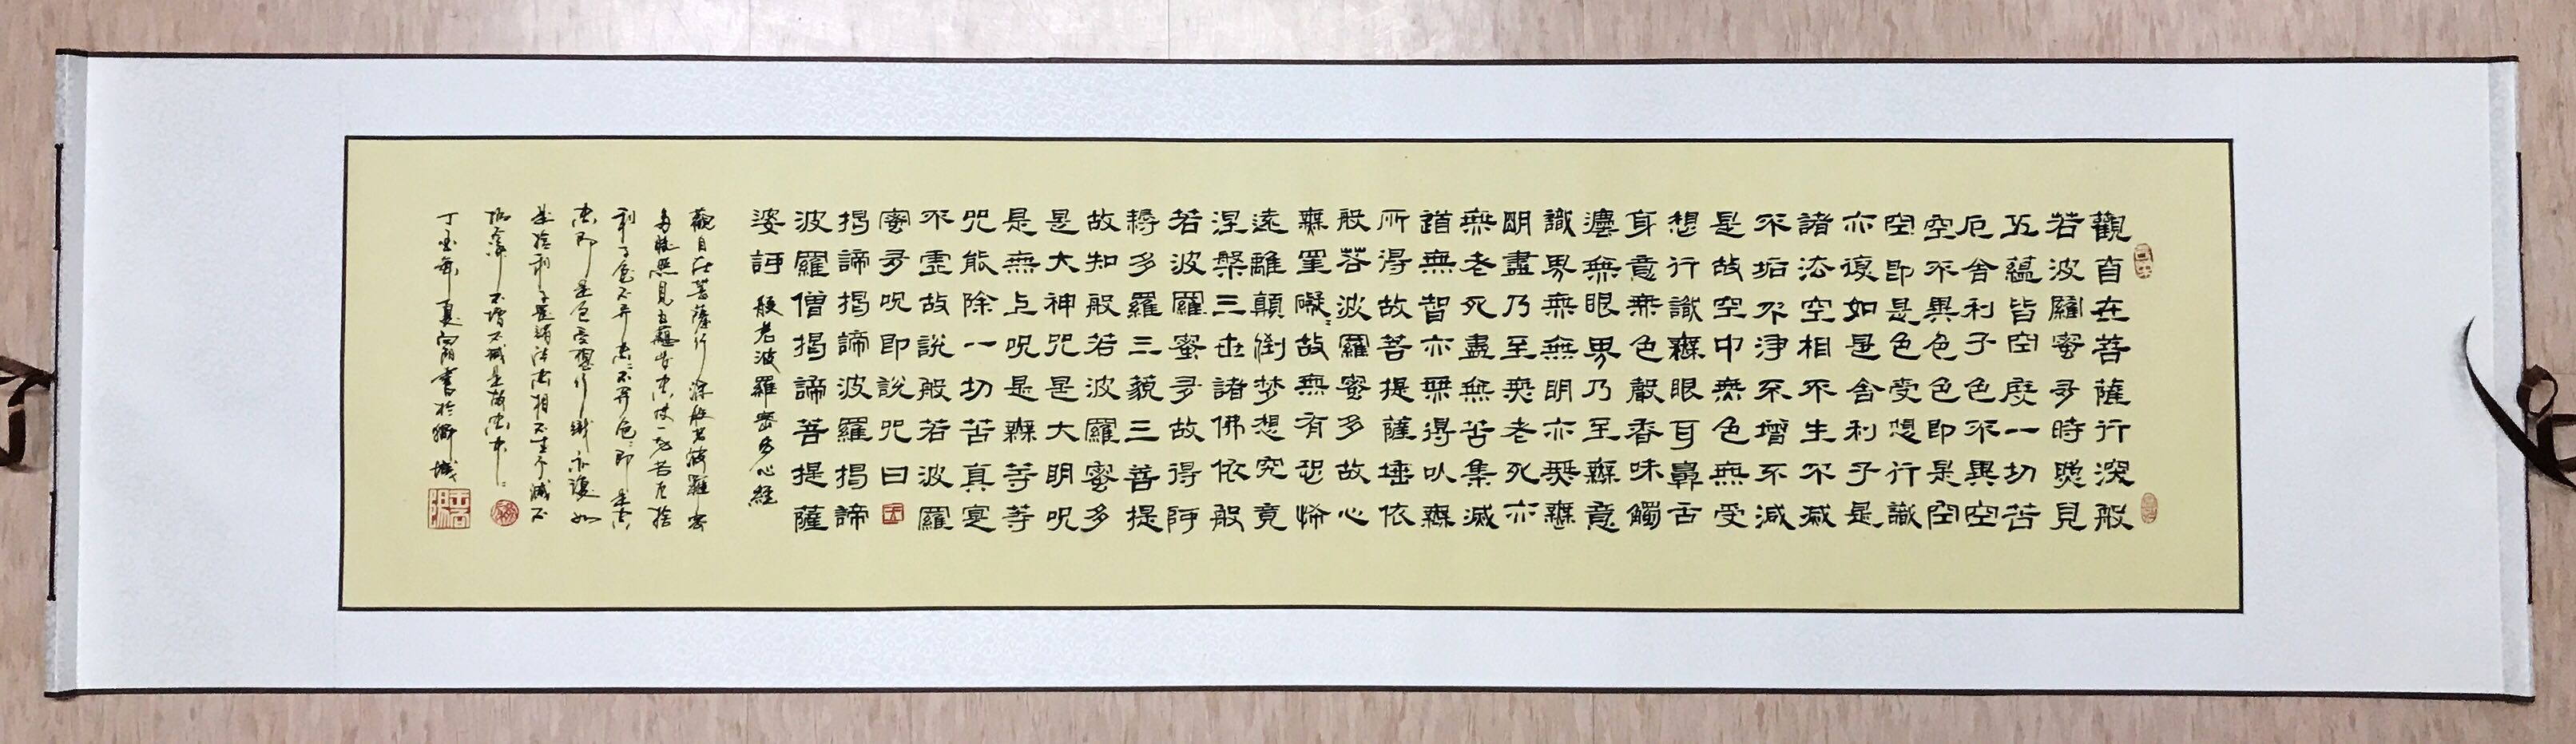 觀自在菩薩行深般
若波羅蜜多時照見
五蘊皆空度一切苦
厄舍利子色不異空
空不異色色即是空
空即是色受想行識
亦復如是舍利子是
諸法空相不生不滅
不垢不淨不增不減
是故空中無色無受
想行識無眼耳鼻舌
身意無色聲香味觸
灋無眼界乃至無意
識界無無明亦無無
明盡乃至無老死亦
無老死盡無苦集滅
道無智亦無得以無
所得故菩提薩埵依
般若波羅蜜多故心
無罣礙〻故無有恐怖
遠離顛倒梦想究竟
涅槃三世諸佛依般
若波羅蜜多故得阿
耨多羅三藐三菩提
故知般若波羅蜜多
是大神咒是大明咒
是無上呪是無等等
咒能除一切苦真寔
不虛故說般若波羅
蜜多呪即說咒曰
揭諦揭諦波羅揭諦
波羅僧揭諦菩提薩
婆訶 般若波羅密多心經
觀自在菩薩行深般若波羅密
多時照見五蘊皆空度一切苦厄捨
利子色不異空〻不異色〻即是空
空即是色受想行識亦復如
是捨利子是諸法空相不生不滅不
垢不淨不增不減是故空中
丁酉年夏書於獅城